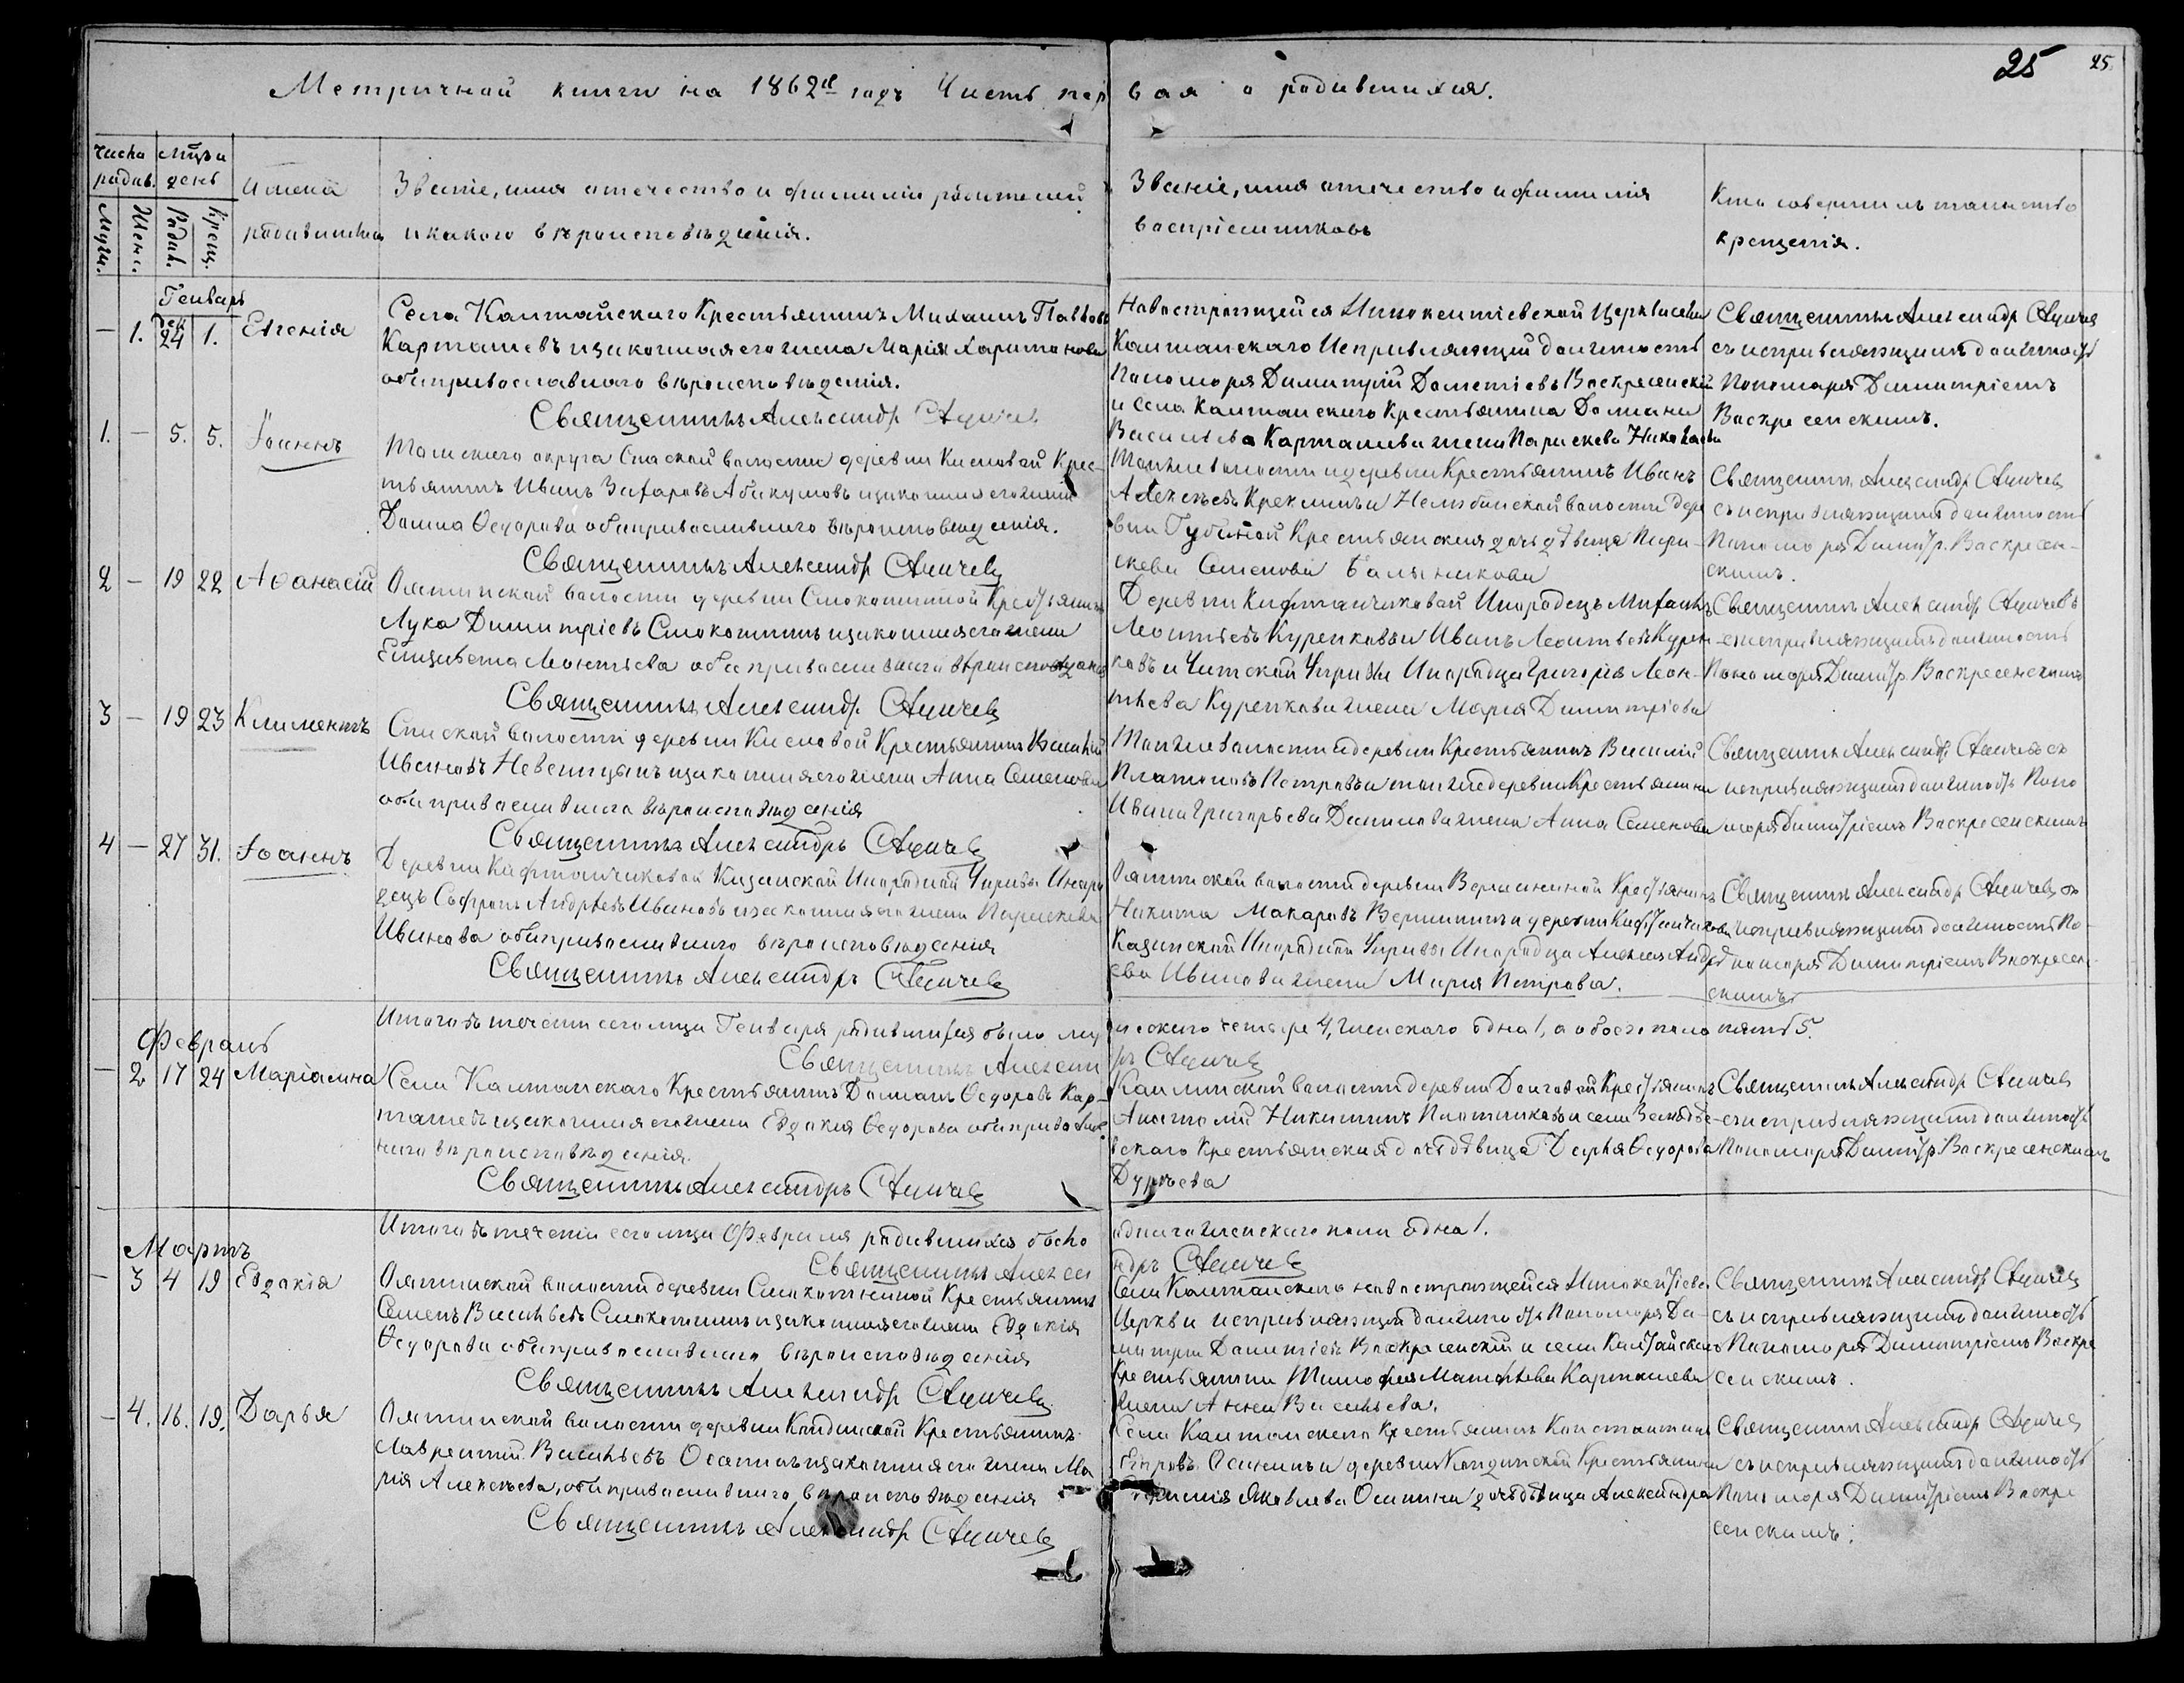 25 25
Метричной книги на 1862й годъ Часть первая о родившихся.
Числа родив. Мцъ и день
Муж. Жен. Родив. Крещ.
Имена родившихся
Званіе, имя отечество и фамилія родителей
и какого вѣроисповѣданія.
Званіе, имя отечество и фамилія
воспріемниковъ
Кто совершилъ таинство
крещенія.
Генварь
— 1. дек 24 1. Евгенія
Села Калтайскаго Крестьянинъ Михаилъ Павловъ
Карташевъ и законная его жена Марія Харитонова
оба православнаго вѣроисповѣданія.
Священникъ Александръ
Новостроющейся Иннокентіевской Церкви села
Калтайскаго Исправляющій должность
Пономоря Димитрій Дометіевъ Воскресенскій
и села Калтайскаго Крестьянина Домана
Васильева Карташева жена Параскева Николаева
Священникъ Александръ
съ исправляющимъ должность
Пономоря Димитріемъ
Воскресенскимъ.
1. — 5. 5. Іоаннъ
Томскаго округа Спаской волости деревни Кисловой Крес-
тьянинъ Иванъ Захаровъ Абакумовъ и законная его жена
Домна Ѳедорова оба православнаго вѣроисповѣданія.
Священникъ Александръ
Той же волости и деревни Крестьянинъ Иванъ
Алексѣевъ Крекнинъ и Нелюбинской волости дере
вни Губиной Крестьянская дочь дѣвица Пара-
скева Семенова
Священникъ Александръ
съ исправляющимъ должность
Пономоря Димитр. Воскресен-
скимъ.
2 — 19 22 Аѳанасій
волости деревни Смокотиной Крестьянинъ
Лука Димитріевъ Смокотинъ и законная его жена
Елизавета Леонтьева оба православнаго вѣроисповѣданія
Священникъ Александръ
Деревни Кафтанчиковой Инородецъ Михаилъ
Леонтьевъ Куренковъ и Иванъ Леонтьевъ Курен
ковъ и Чатской Управы Инородца Григорія Леон-
тьева Куренкова жена Марія Димитріева
Священникъ Александръ
съ исправляющимъ должность
Пономоря Димитр. Воскресенскимъ
3 — 19 23 Климентъ
Спаской волости деревни Кисловой Крестьянинъ
Ивановъ и законная его жена Анна Семенова
оба православнаго вѣроисповѣданія
Священникъ Александръ
Той же волости и деревни Крестьянинъ Василій
Платоновъ Петровъ и той же деревни Крестьянина
Ивана Григорьева Данилова жена Анна Семенова
Священникъ Александръ съ
исправляющимъ должность Поно
моря Димитріемъ Воскресенскимъ
4 — 27 31. Іоаннъ
Деревни Кафтанчиковой Казанской Инородной Управы Иноро
децъ Софронъ Андреевъ Ивановъ и законная его жена Параскева
Иванова оба православнаго вѣроисповѣданія
Священникъ Александръ
волости деревни Вершининой Крестьянинъ
Никита Макаровъ Вершининъ и деревни Кафтанчиковой
Казанской Инородной Управы Инородца Алексея Андре
ева Иванова жена Марія Петрова.
Священникъ Александръ съ
исправляющимъ должность По-
номоря Димитріемъ Воскресен-
скимъ
Итого въ теченіи сего мца Генваря родившихся было мужескаго четыре 4, женскаго одна 1, а обоего пола пять 5.
Священникъ Александръ
Февраль
— 2 17 24 Маріамна
Села Калтайскаго Крестьянинъ Доманъ Ѳедоровъ Кар-
ташевъ и законная его жена Евдокия Ѳедорова оба православ
наго вѣроисповѣданія.
Священникъ Александръ
волости деревни Долговой Крестьянинъ
Анатолій Никитинъ Плотниковъ и села
вскаго Крестьянская дочь дѣвица Дарья Ѳедорова
Священникъ Александръ
съ исправляющимъ должность
Пономоря Димитр. Воскресенскимъ
Итого въ теченіи сего мца Февраля родившихся было одна женскаго пола одна 1.
Священникъ Александръ
Мартъ
— 3 4 19 Евдокія
волости деревни Смокотиной Крестьянинъ
Семенъ Васильевъ Смокотинъ и законная его жена Евдокія
Ѳедорова оба православнаго вѣроисповѣданія
Священникъ Александръ
Села Калтайскаго новостроющейся Иннокентіев
Церкви исправляющій должность Пономоря Ди-
митрій Дометіевъ Воскресенскій и села Калтайскаго
Крестьянина Тимофея Матвѣева Карташева
жена Анна Васильева.
Священникъ Александръ
съ исправляющимъ должность
Пономоря Димитріемъ Воскре
сенскимъ.
— 4. 16. 19. Дарья
волости деревни Кандинской Крестьянинъ
Лаврентій Васильевъ Осанинъ и законная его жена Ма
рія Алексѣева, оба православнаго вѣроисповѣданія
Священникъ Александръ
Села Калтайскаго Крестьянинъ Константинъ
и деревни Кандинской Крестьянина
Яковлева Осипина дочь дѣвица Александра
Священникъ Александръ
съ исправляющимъ должность
Пономоря Димитріемъ Воскре
сенскимъ.